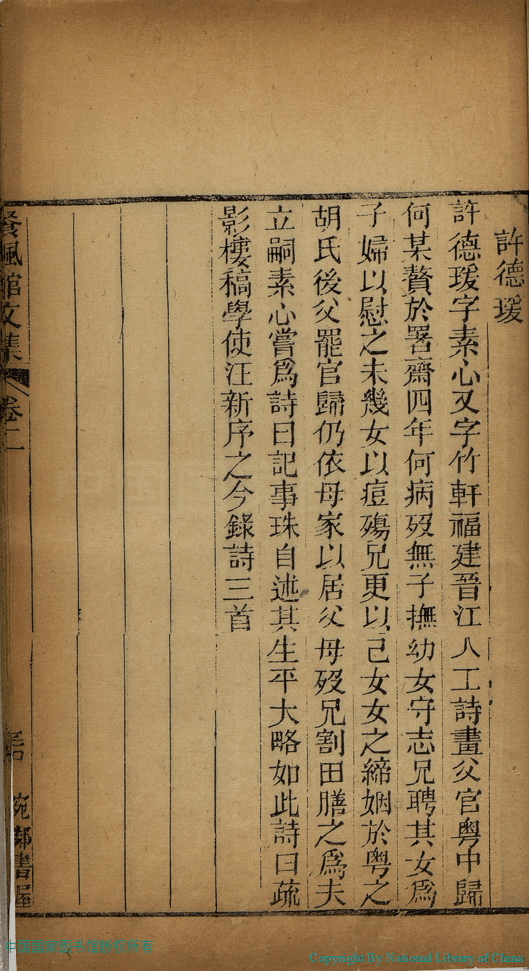 許德瑗
許德瑗字素心又字竹軒福建晉江人工詩畫父官粵中歸
何某贅於署齋四年何病歿無子撫幼女守志兄聘其女爲
子婦以慰之未幾女以痘殤兄更以己女女之締姻於粵之
胡氏後父罷官歸仍依母家以居父母歿兄割田膳之爲夫
立嗣素心嘗爲詩曰記事珠自述其生平大略如此詩曰疏
影樓稿學使汪新序之今錄詩三首
餐楓館文集 卷二
宛鄰書屋
中国国家图书馆版权所有
Copyright By National Library of China